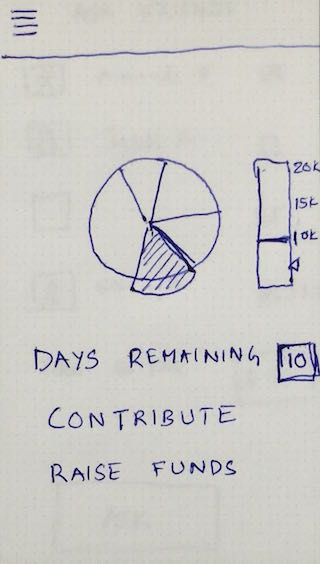 20K
15K
10K
DAYS REMAINING 10
CONTRIBUTE
RAISE FUNDS